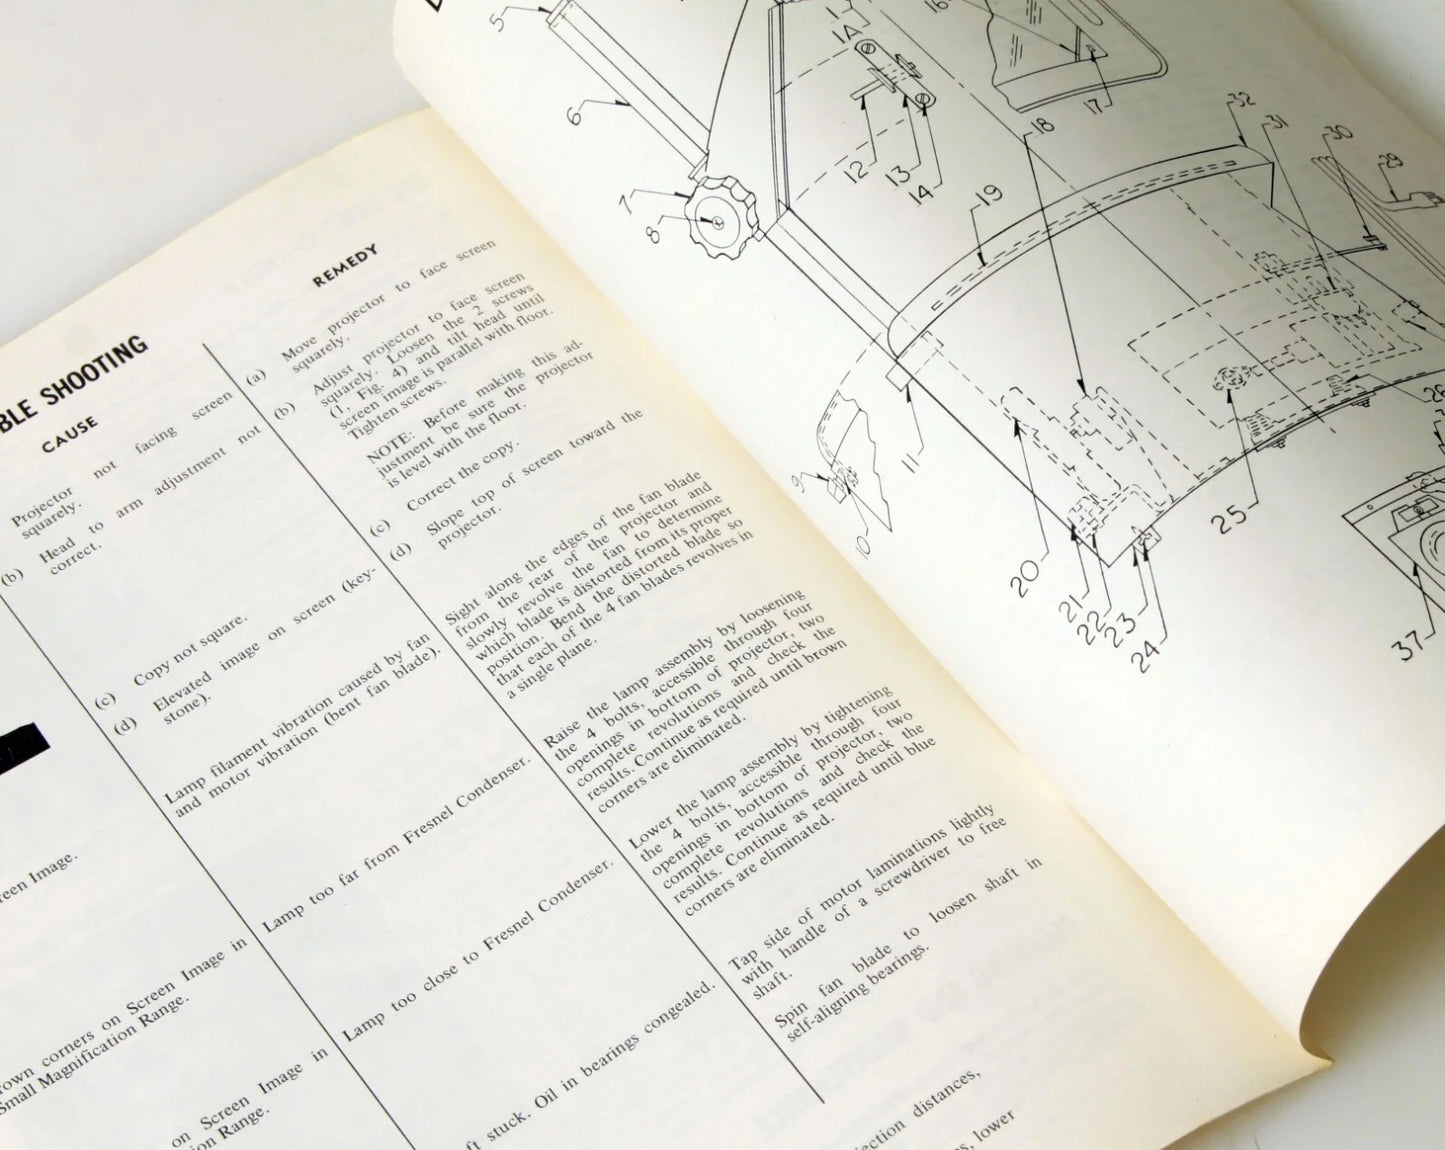 BLE SHOOTING
CAUSE
REMEDY
Projector not facing screen
squarely.
(b) Head to arm adjustment not
correct.
(c) Copy not square.
(d) Elevated image on screen (key-
stone).
Lamp filament vibration caused by fan
and motor vibration (bent fan blade).
Lamp too far from Fresnel Condenser.
Lamp too close to Fresnel Condenser.
ft stuck. Oil in bearings congealed.
reen Image.
rown corners on Screen Image in
Small Magnification Range.
on Screen Image in
ion Range.
(a) Move projector to face screen
squarely.
(b) Adjust projector to face screen
squarely. Loosen the 2 screws
(1, Fig. 4) and tilt head until
screen image is parallel with floor.
Tighten screws.
NOTE: Before making this ad-
justment be sure the projector
is level with the floor.
(c) Correct the copy.
(d) Slope top of screen toward the
projector.
Sight along the edges of the fan blade
from the rear of the projector and
slowly revolve the fan to determine
which blade is distorted from its proper
position. Bend the distorted blade so
that each of the 4 fan blades revolves in
a single plane.
Raise the lamp assembly by loosening
the 4 bolts, accessible through four
openings in bottom of projector, two
complete revolutions and check the
results. Continue as required until brown
corners are eliminated.
Lower the lamp assembly by tightening
the 4 bolts, accessible through four
openings in bottom of projector, two
complete revolutions and check the
results. Continue as required until blue
corners are eliminated.
Tap side of motor laminations lightly
with handle of a screwdriver to free
shaft.
Spin fan blade to loosen shaft in
self-aligning bearings.
ection distances,
s, lower
5
6
7
8
9
10
11
1
1A
12
13
14
16
17
18
19
20
21
22
23
24
25
26
29
30
31
32
37